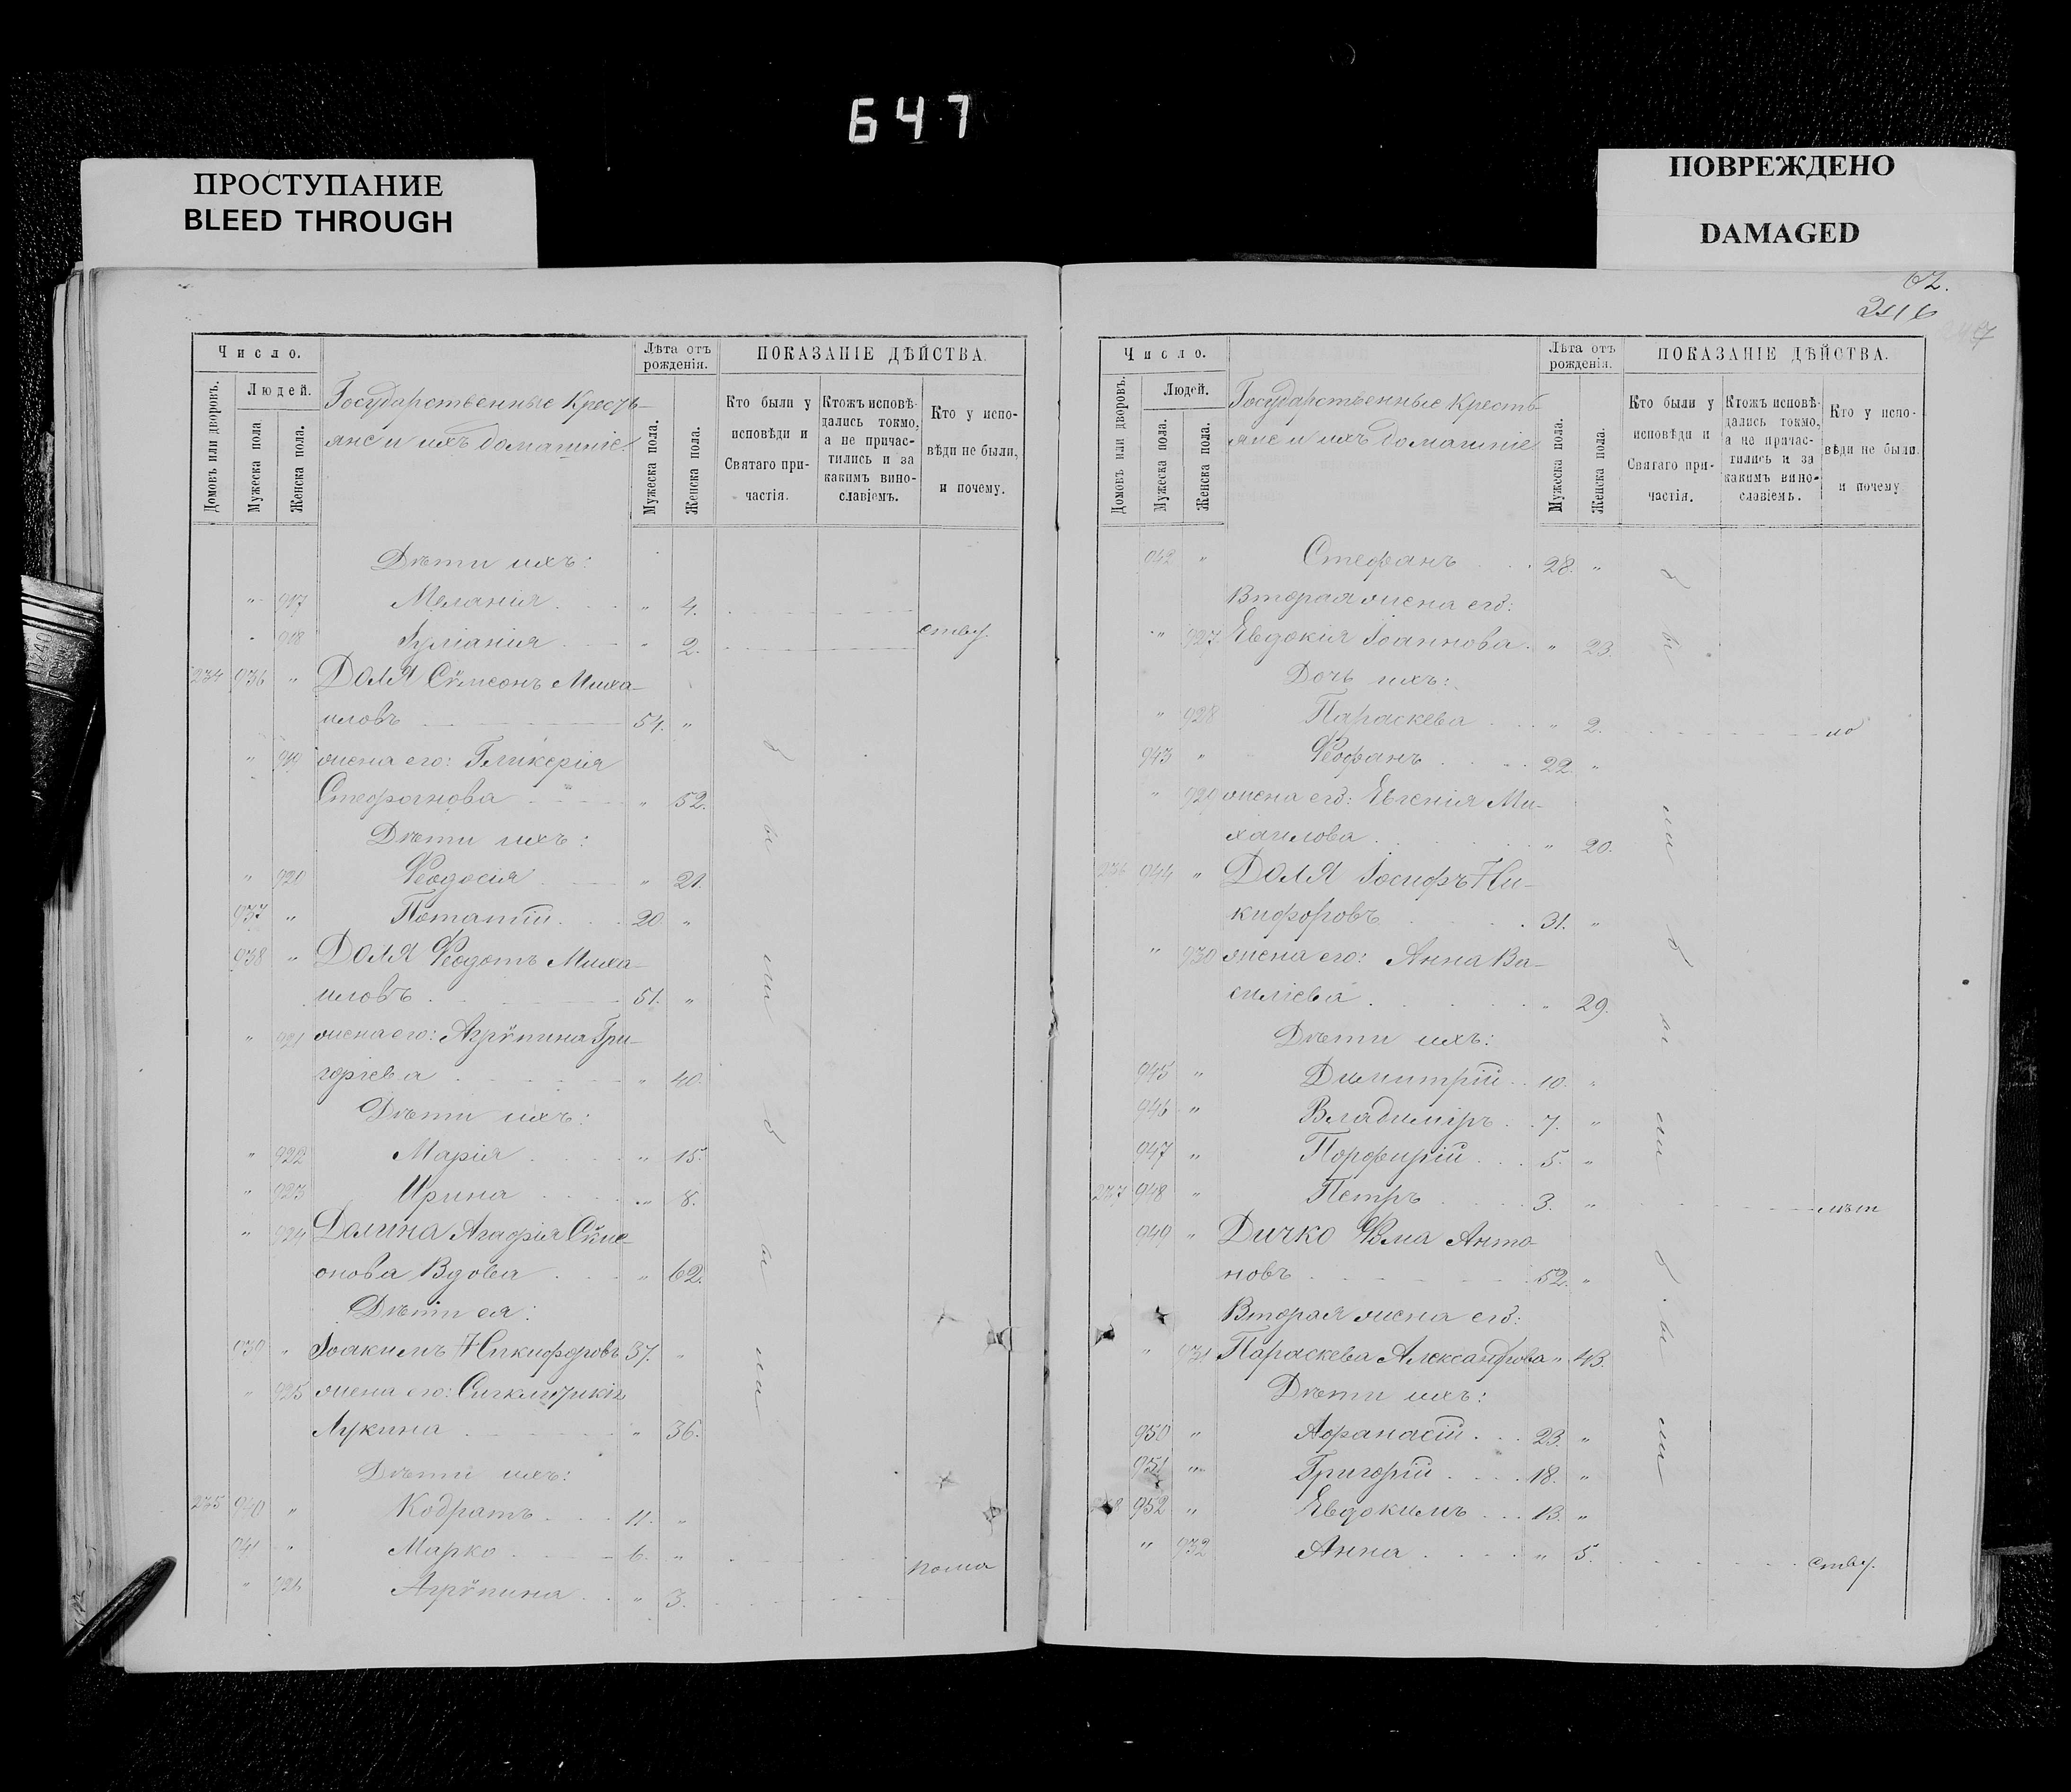 647
ПРОСТУПАНИЕ
BLEED THROUGH
ПОВРЕЖДЕНО
DAMAGED
Число.
Домовъ или дворовъ.
Людей.
Мужеска пола
Женска пола.
Государственные Кресть-
яне и ихъ домашніе.
Лѣта отъ рожденія.
Мужеска пола.
Женска пола.
ПОКАЗАНІЕ ДѢЙСТВА.
Кто были у исповѣди и Святаго при-частія.
Ктожъ исповѣ-дались токмо, а не причас-тились и за какимъ вино-славіемъ.
Кто у испо-вѣди не были, и почему.
Дѣти ихъ:
" 917 Меланія " 4.
" 918 Іуліанія " 2. ству.
274 936 " Доля Сѵмеонъ Миха-
иловъ 54. "
" 919 жена его: Гликерія
Стефанова " 52.
Дѣти ихъ:
" 920 Феодосія " 21.
937 " Потапій 20 "
938 " Доля Феодотъ Миха-
иловъ 51. "
" 921 жена его: Агрѵпина Гри-
горіева " 40.
Дѣти ихъ:
" 922 Марія " 15.
" 923 Ирина " 8.
" 924 Долина Агафія Сѵме-
онова Вдова " 62.
Дѣти ея:
939 " Іоакимъ Никифоровъ 37. "
" 925 жена его: Сигклитикія
Лукина " 36.
Дѣти ихъ:
275 940 " Кодратъ 11. "
941 " Марко 6. "
" 926 Агрѵпина " 3.
были были
62.
2416
Число.
Домовъ или дворовъ.
Людей.
Мужеска пола.
Женска пола.
Государственные Кресть-
яне и ихъ домашніе
Лѣта отъ рожденія.
Мужеска пола.
Женска пола.
ПОКАЗАНІЕ ДѢЙСТВА.
Кто были у исповѣди и Святаго при-частія.
Ктожъ исповѣ-дались токмо, а не причас-тились и за какимъ вино-славіемъ.
Кто у испо-вѣди не были. и почему
942 " Стефанъ 28. "
Вторая жена его:
" 927 Евдокія Іоаннова " 23.
Дочь ихъ:
" 928 Параскева " 2. по
943 " Феофанъ 22. "
" 929 жена его: Евгенія Ми-
хаилова " 20.
276 944 " Доля Іосифъ Ни-
кифоровъ 31. "
" 930 жена его: Анна Ва-
силіева " 29.
Дѣти ихъ:
945 " Димитрій 10. "
946 " Владиміръ 7. "
947 " Порфирій 5. "
277 948 " Петръ 3. " лѣт
949 " Дичко Фома Анто-
новъ 52. "
Вторая жена его:
" 931 Параскева Александрова " 43.
Дѣти ихъ:
950 " Афанасій 23. "
951 " Григорій 18. "
952 " Евдокимъ 13. "
" 932 Анна " 5. ству.
были были были